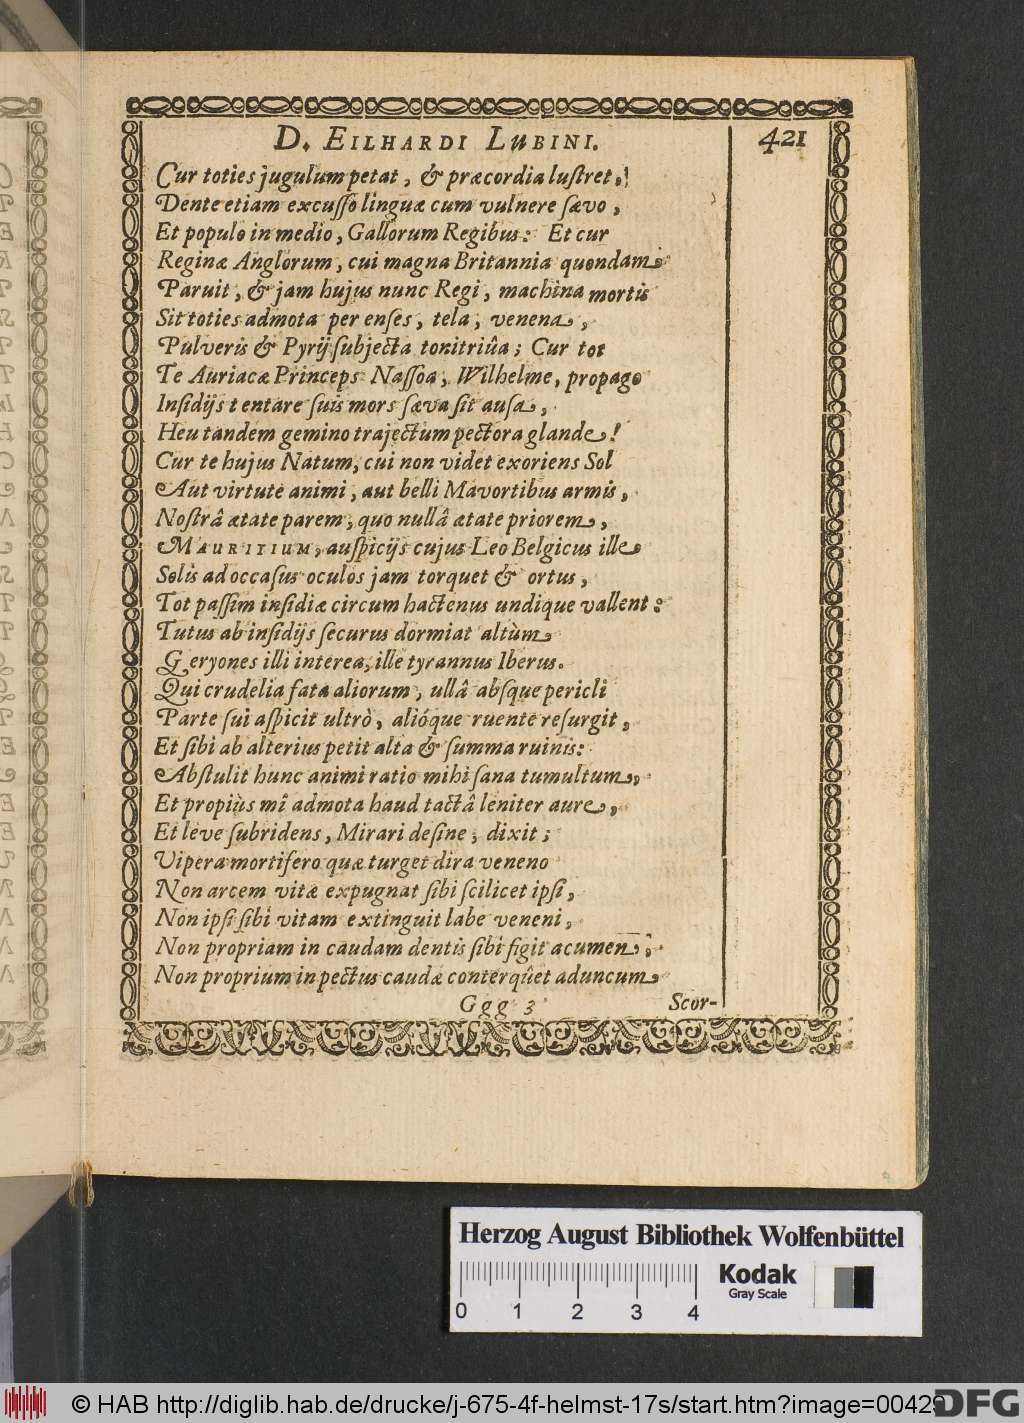 D. EILHARDI LUBINI. 421
Cur toties jugulum petat, & præcordia luſtret,!
Dente etiam excuſſo linguæ cum vulnere ſævo,
Et populo in medio, Gallorum Regibus: Et cur
Reginæ Anglorum, cui magna Britannia quondam
Paruit, & jam hujus nunc Regi, machina mortis
Sit toties admota per enſes, tela, venena,
Pulveris & Pyrij ſubjecta tonitriûa; Cur tot
Te Auriacæ Princeps Naſſoa, Wilhelme, propago
Inſidijs tentare ſuis mors ſæva ſit auſa,
Heu tandem gemino trajectum pectora glande!
Cur te hujus Natum, cui non videt exoriens Sol
Aut virtute animi, aut belli Mavortibus armis,
Noſtrâ ætate parem, quo nullâ ætate priorem,
MAURITIUM, auſpicijs cujus Leo Belgicus ille
Solis ad occaſus oculos jam torquet & ortus,
Tot paſſim inſidiæ circum hactenus undique vallent:
Tutus ab inſidijs ſecurus dormiat altùm
Geryones illi interea, ille tyrannus Iberus.
Qui crudelia fata aliorum, ullâ abſque pericli
Parte ſui aſpicit ultrò, alióque ruente reſurgit,
Et ſibi ab alterius petit alta & ſumma ruinis:
Abſtulit hunc animi ratio mihi ſana tumultum,
Et propiùs mî admota haud tactâ leniter aure,
Et leve ſubridens, Mirari deſine, dixit;
Vipera mortifero quæ turget dira veneno
Non arcem vitæ expugnat ſibi ſcilicet ipſi,
Non ipſi ſibi vitam extinguit labe veneni,
Non propriam in caudam dentis ſibi figit acumen;
Non proprium in pectus caudæ conterquet aduncum
Ggg 3 Scor-
Herzog August Bibliothek Wolfenbüttel
0 1 2 3 4
Kodak
Gray Scale
© HAB http://diglib.hab.de/drucke/j-675-4f-helmst-17s/start.htm?image=00429
DFG